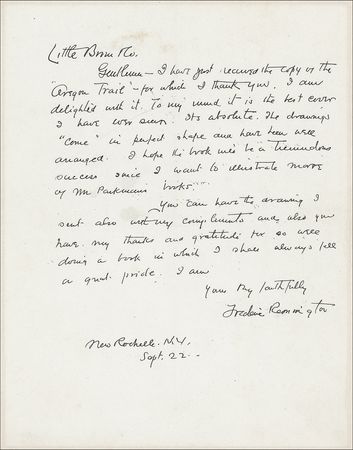 Little Brown & Co.
Gentlemen — I have just received the copy of the
"Oregon Trail" — for which I thank you. I am
delighted with it. To my mind it is the best cover
I have ever seen. It's absolute. The drawings
"come" in perfect shape and have been well
arranged. I hope the book will be a tremendous
success since I want to illustrate more
of Mr Parkmans books.
You can have the drawing I
sent also with my compliments and also you
have my thanks and gratitude for so well
doing a book in which I shall always feel
a great pride. I am
Yours very faithfully
Frederic Remington
New Rochelle. N.Y.
Sept. 22 -